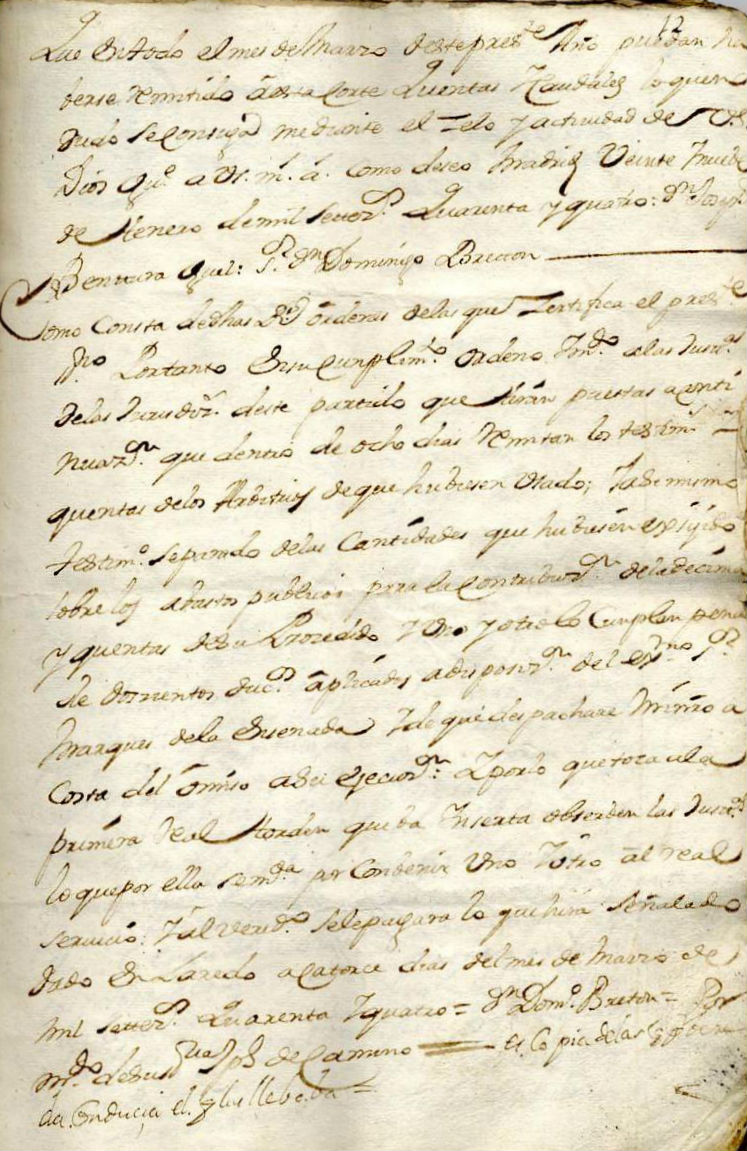 12
Que en todo el mes de Marzo deste pres.te Año puedan ha
berse remitido a esta Corte quentas y Caudales lo que no
dudo se consiga mediante el zelo y actividad de V.S.
Dios gu.e a V.S. m.s a.s como deseo Madrid Veinte y nuebe
de Henero de mil setez.s quarenta y quatro: Dn Joseph
Bentura Guel: S.r Dn Domingo Bretton
Como consta de dhas Rs ordenes de las que Zertifica el pres.te
ss.no Por tanto en su Cunplim.to ordeno y m.do a las Just.as
de las Jurisdiz.s deste partido que serán puestas a conti
nuaz.on que dentro de ocho dias remitan los testim.s
quentas de los Arbitrios de que hubiesen usado; y asi mismo
testim.o separado de las Cantidades que hubiesen exijido
sobre los abastos publicos para la Contribuz.on de la decima
y quentas de su Prozedido y uno y otro lo Cunplan pena
de doszientos duc.s aplicados a disposiz.on del ex.mo S.r
Marques de la Ensenada y de que despachare Ministro a
costa del omiso a su ejecuz.on: y por lo que toca a la
primera Real Horden que ba ynserta observen las Just.as
lo que por ella se m.da por Conbenir uno y otro al real
servicio: y al vered.o se le pagara lo que hira señalado
dado en Laredo a Catorce dias del mes de Marzo de
mil setez.s quarenta y quatro = Dn Dom.o Breton = Por
m.do de su S.ria Jph de Camino = es Copia de las
da. Conducia el que lleba